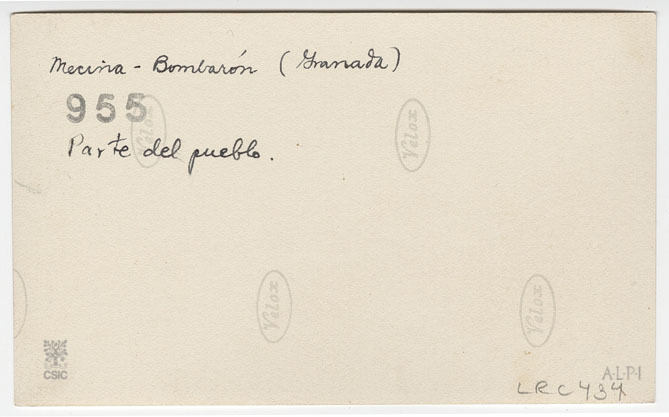 Mecina - Bombarón (Granada)
955
Velox
Velox
Parte del pueblo.
Velox
Velox
CSIC
A·L·P·I
LRC434